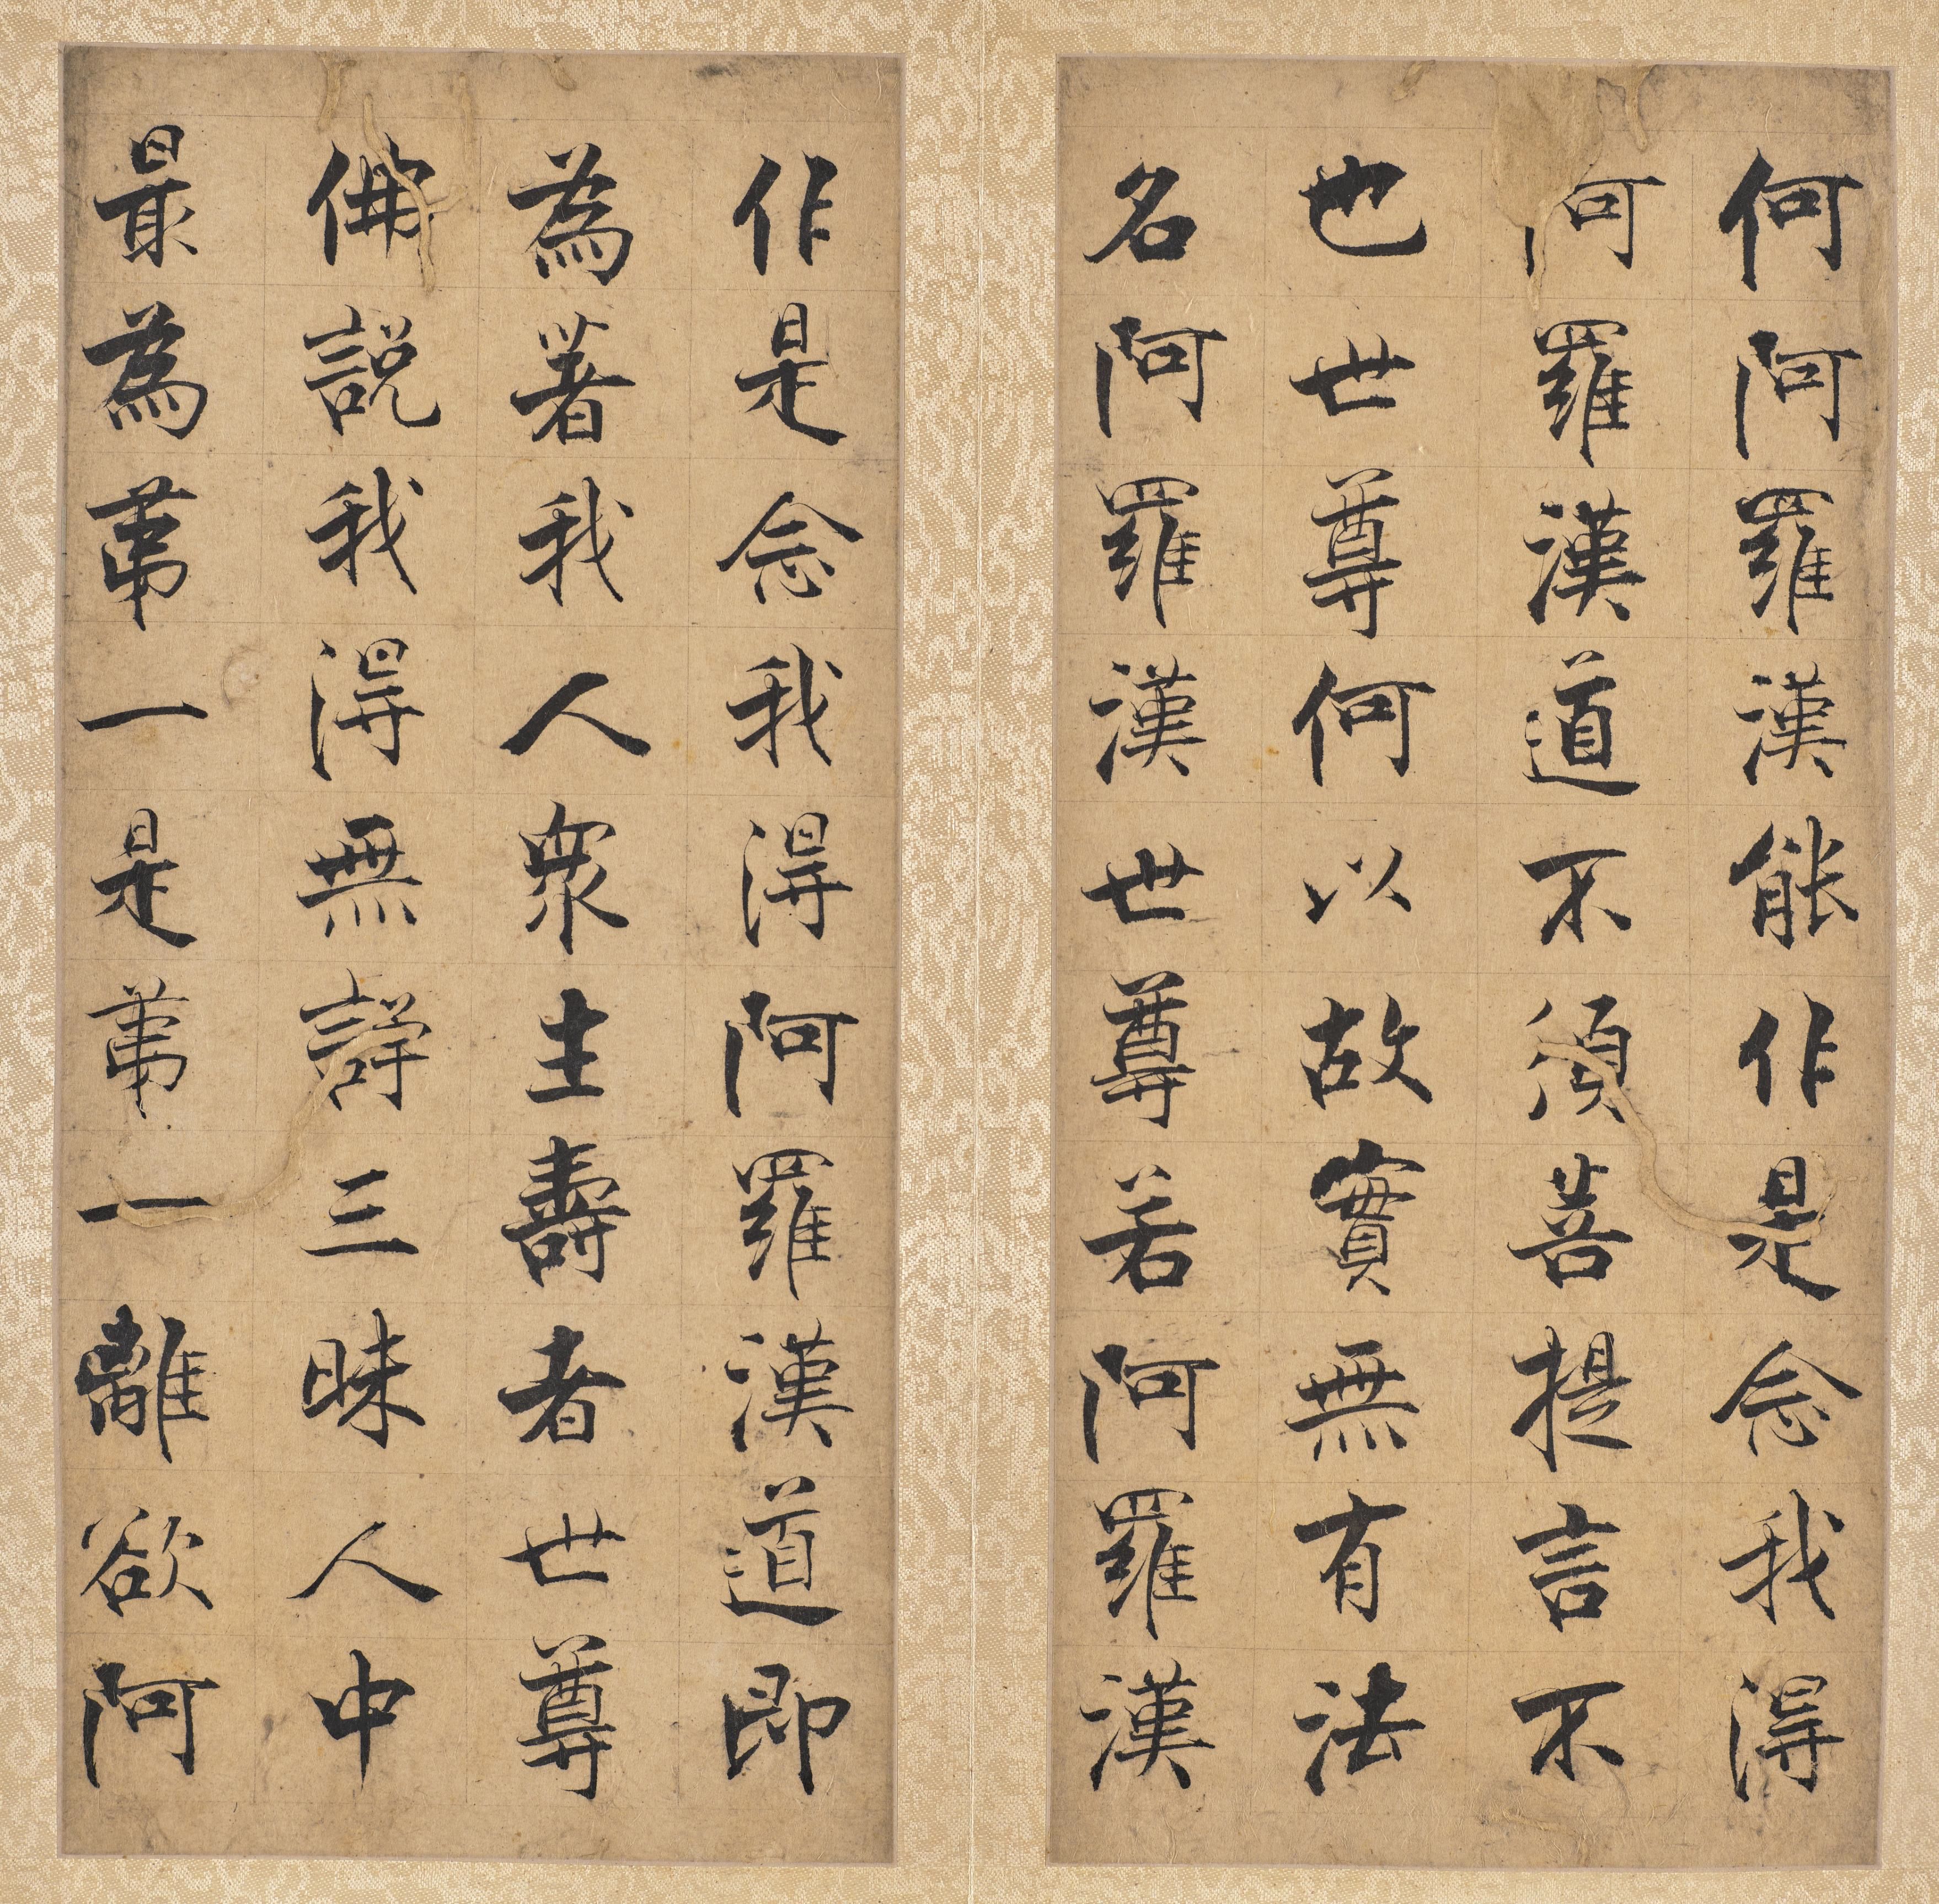 何阿羅漢能作是念我得
阿羅漢道不須菩提言不
也世尊何以故實無有法
名阿羅漢世尊若阿羅漢
作是念我得阿羅漢道即
為著我人衆生壽者世尊
佛說我得無諍三昧人中
最為苐一是苐一離欲阿